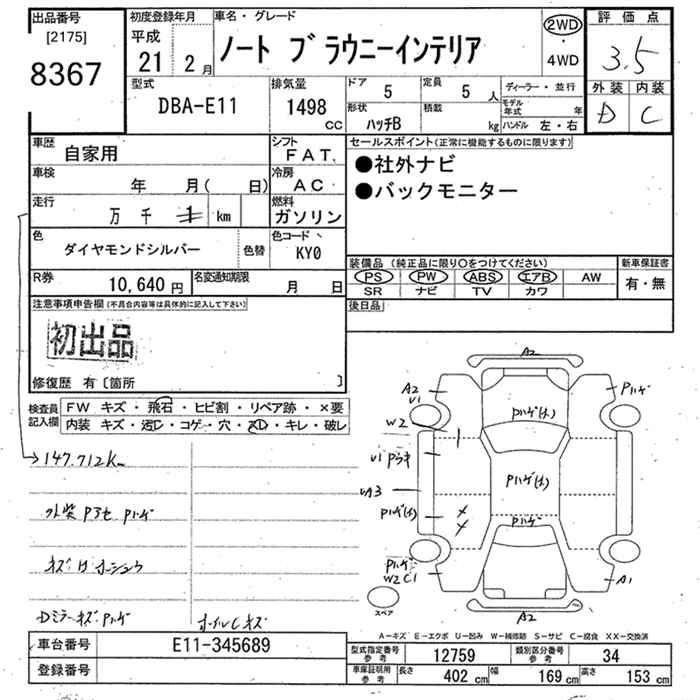 出品番号
[2175]
8367
初度登録年月
平成
21 2月
車名・グレード
ノート ブラウニーインテリア
2WD
・
4WD
評価点
3.5
外装 内装
D C
型式
DBA-E11
排気量
1498 CC
ドア 5
定員 5 人
形状 ハッチB
積載 kg
ディーラー・並行
モデル年式 年
ハンドル 左・右
車歴 自家用
シフト FAT
車検 年 月( 日)
冷房 AC
走行 万 千 km
燃料 ガソリン
色 ダイヤモンドシルバー
色替
色コード KY0
R券 10,640 円
名変通知期限 月 日
セールスポイント(正常に機能するものに限ります)
●社外ナビ
●バックモニター
装備品 (純正品に限り○をつけてください)
PS PW ABS エアB AW
SR ナビ TV カワ
新車保証書
有・無
後日品
注意事項申告欄(不具合内容等は具体的に記入して下さい)
初出品
修復歴 有〔箇所 〕
検査員記入欄
FW キズ・飛石・ヒビ割・リペア跡・×要
内装 キズ・汚レ・コゲ・穴・スレ・キレ・破レ
147,712K
外装 Pアセ Pハゲ
キズ
Dミラーキズ Pハゲ
C キズ
A2
A2
U1
Pハゲ
W2
Pハゲ(大)
U1 Pウキ
Pハゲ(大)
UA3
Pハゲ(大)
Pハゲ
Pハゲ
W2 C1
A1
A2
スペア
A-キズ E-エクボ U-凹み W-補修跡 S-サビ C-腐食 XX-交換済
車台番号 E11-345689
登録番号
型式指定番号 参考 12759
類別区分番号 参考 34
車庫証明用 参考
長さ 402 cm
幅 169 cm
高さ 153 cm